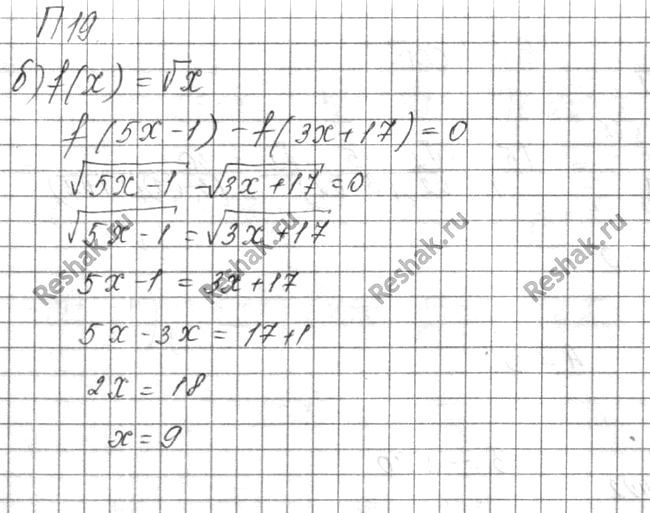 П19
б) f(x) = √x
f(5x-1) - f(3x+17) = 0
√5x-1 - √3x+17 = 0
√5x-1 = √3x+17
5x-1 = 3x+17
5x-3x = 17+1
2x = 18
x = 9
Reshak.ru Reshak.ru Reshak.ru Reshak.ru